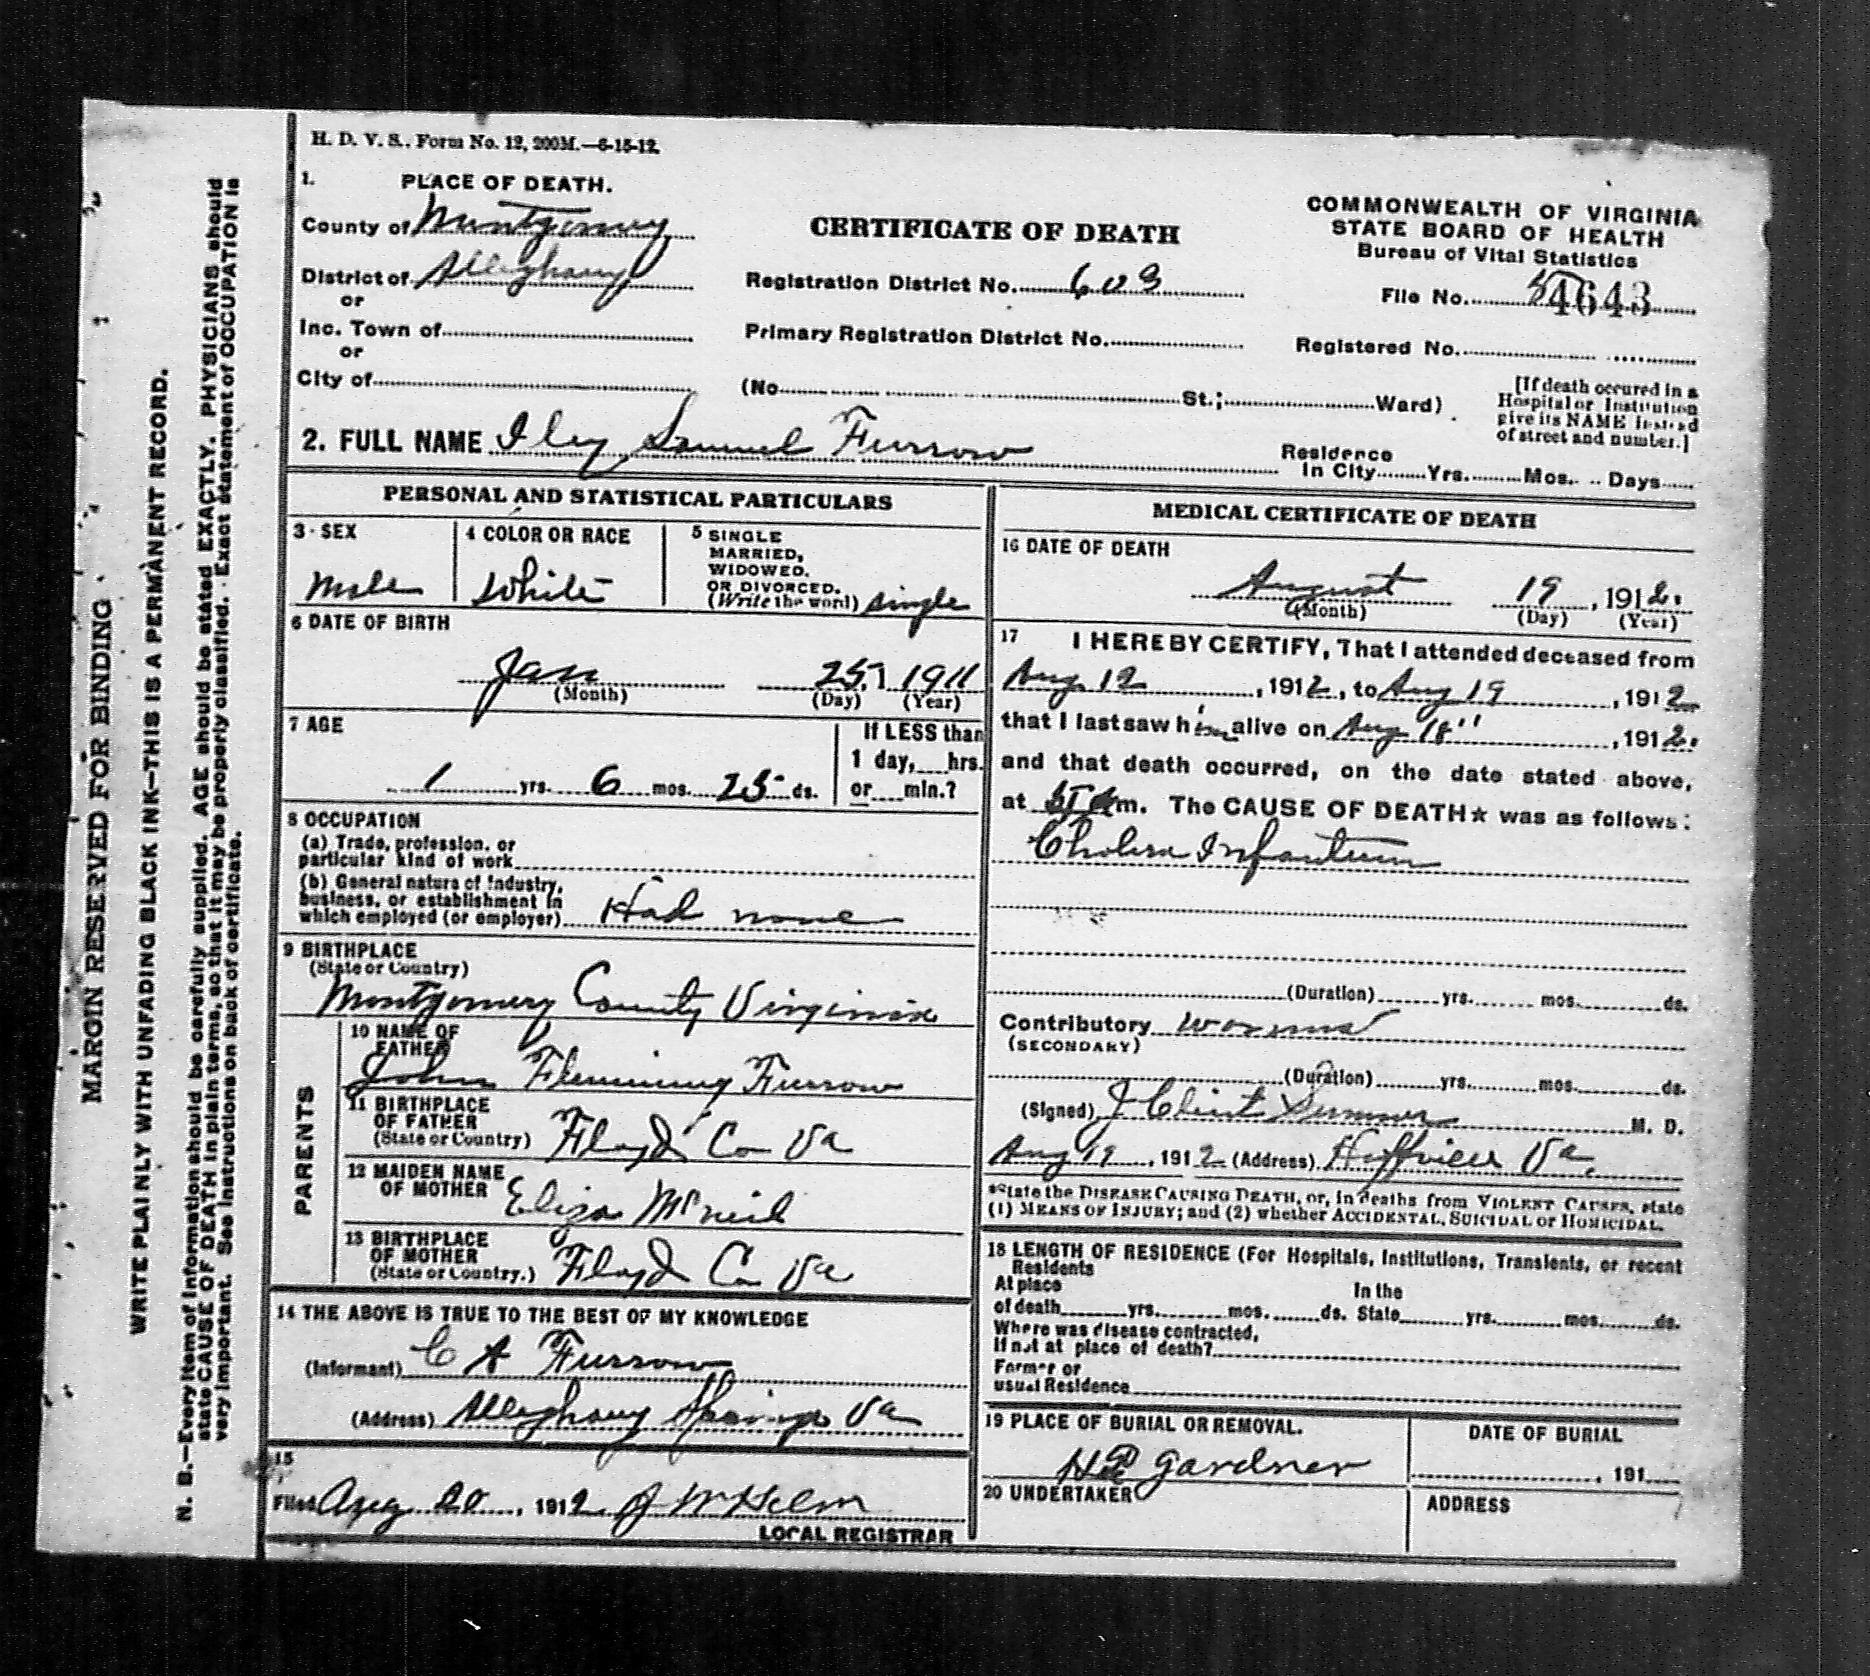 H. D. V. S., Form No. 12, 200M.—6-15-12.
1. PLACE OF DEATH.
County of Montgomery
District of Alleghany
or
Inc. Town of
or
City of
CERTIFICATE OF DEATH
Registration District No. 603
Primary Registration District No.
(No. St.; Ward)
COMMONWEALTH OF VIRGINIA
STATE BOARD OF HEALTH
Bureau of Vital Statistics
File No. 4643
Registered No.
[If death occured in a
Hospital or Institution
give its NAME instead
of street and number.]
2. FULL NAME Iley Samuel Furrow
Residence
In City Yrs. Mos. Days
PERSONAL AND STATISTICAL PARTICULARS
3 SEX
Male
4 COLOR OR RACE
White
5 SINGLE
MARRIED,
WIDOWED.
OR DIVORCED.
(Write the word) single
6 DATE OF BIRTH
Jan 25, 1911
(Month) (Day) (Year)
7 AGE
1 yrs. 6 mos. 25 ds.
If LESS than
1 day, hrs.
or min.?
8 OCCUPATION
(a) Trade, profession, or
particular kind of work
(b) General nature of industry,
business, or establishment in
which employed (or employer) Had none
9 BIRTHPLACE
(State or Country)
Montgomery County Virginia
PARENTS
10 NAME OF
FATHER
John Flemming Furrow
11 BIRTHPLACE
OF FATHER
(State or Country) Floyd Co Va
12 MAIDEN NAME
OF MOTHER Eliza McNeil
13 BIRTHPLACE
OF MOTHER
(State or Country.) Floyd Co Va
14 THE ABOVE IS TRUE TO THE BEST OF MY KNOWLEDGE
(Informant) C A Furrow
(Address) Alleghany Springs Va
15
Filed Aug 20, 1912 J W Helm
LOCAL REGISTRAR
MEDICAL CERTIFICATE OF DEATH
16 DATE OF DEATH
August 19, 1912.
(Month) (Day) (Year)
17 I HEREBY CERTIFY, That I attended deceased from
Aug 12, 1912, to Aug 19, 1912
that I last saw him alive on Aug 18", 1912.
and that death occurred, on the date stated above,
at m. The CAUSE OF DEATH★ was as follows:
Cholera Infantum
(Duration) yrs. mos. ds.
Contributory worms
(SECONDARY)
(Duration) yrs. mos. ds.
(Signed) J Clint Sumner M. D.
Aug 19, 1912 (Address) Huffville Va.
*State the DISEASE CAUSING DEATH, or, in deaths from VIOLENT CAUSES, state
(1) MEANS OF INJURY; and (2) whether ACCIDENTAL, SUICIDAL or HOMICIDAL.
18 LENGTH OF RESIDENCE (For Hospitals, Institutions, Transients, or recent
Residents
At place In the
of death yrs. mos. ds. State yrs. mos. ds.
Where was disease contracted,
If not at place of death?
Former or
usual Residence
19 PLACE OF BURIAL OR REMOVAL.
Gardner
DATE OF BURIAL
, 191
20 UNDERTAKER
ADDRESS
MARGIN RESERVED FOR BINDING
WRITE PLAINLY WITH UNFADING BLACK INK—THIS IS A PERMANENT RECORD.
N. B.—Every item of information should be carefully supplied. AGE should be stated EXACTLY. PHYSICIANS should
state CAUSE OF DEATH in plain terms, so that it may be properly classified. Exact statement of OCCUPATION is
very important. See instructions on back of certificate.